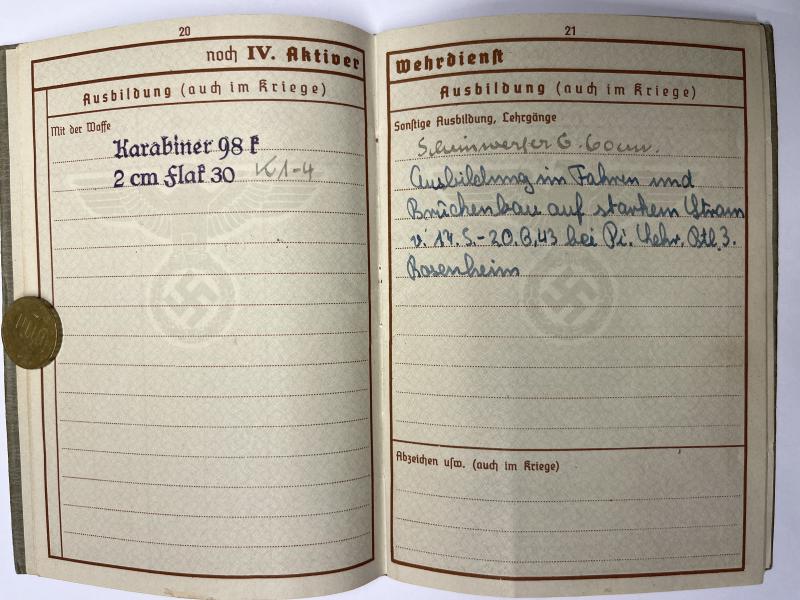 20
noch IV. Aktiver
Ausbildung (auch im Kriege)
Mit der Waffe
Karabiner 98 k
2 cm Flak 30 K1-4
21
Wehrdienst
Ausbildung (auch im Kriege)
Sonstige Ausbildung, Lehrgänge
Scheinwerfer 60 cm.
Ausbildung im Fahren und
Brückenbau auf starkem Strom
v. 17.5.-20.6.43 bei Pi. Lehr. Btl. 3.
Rosenheim
Abzeichen usw. (auch im Kriege)